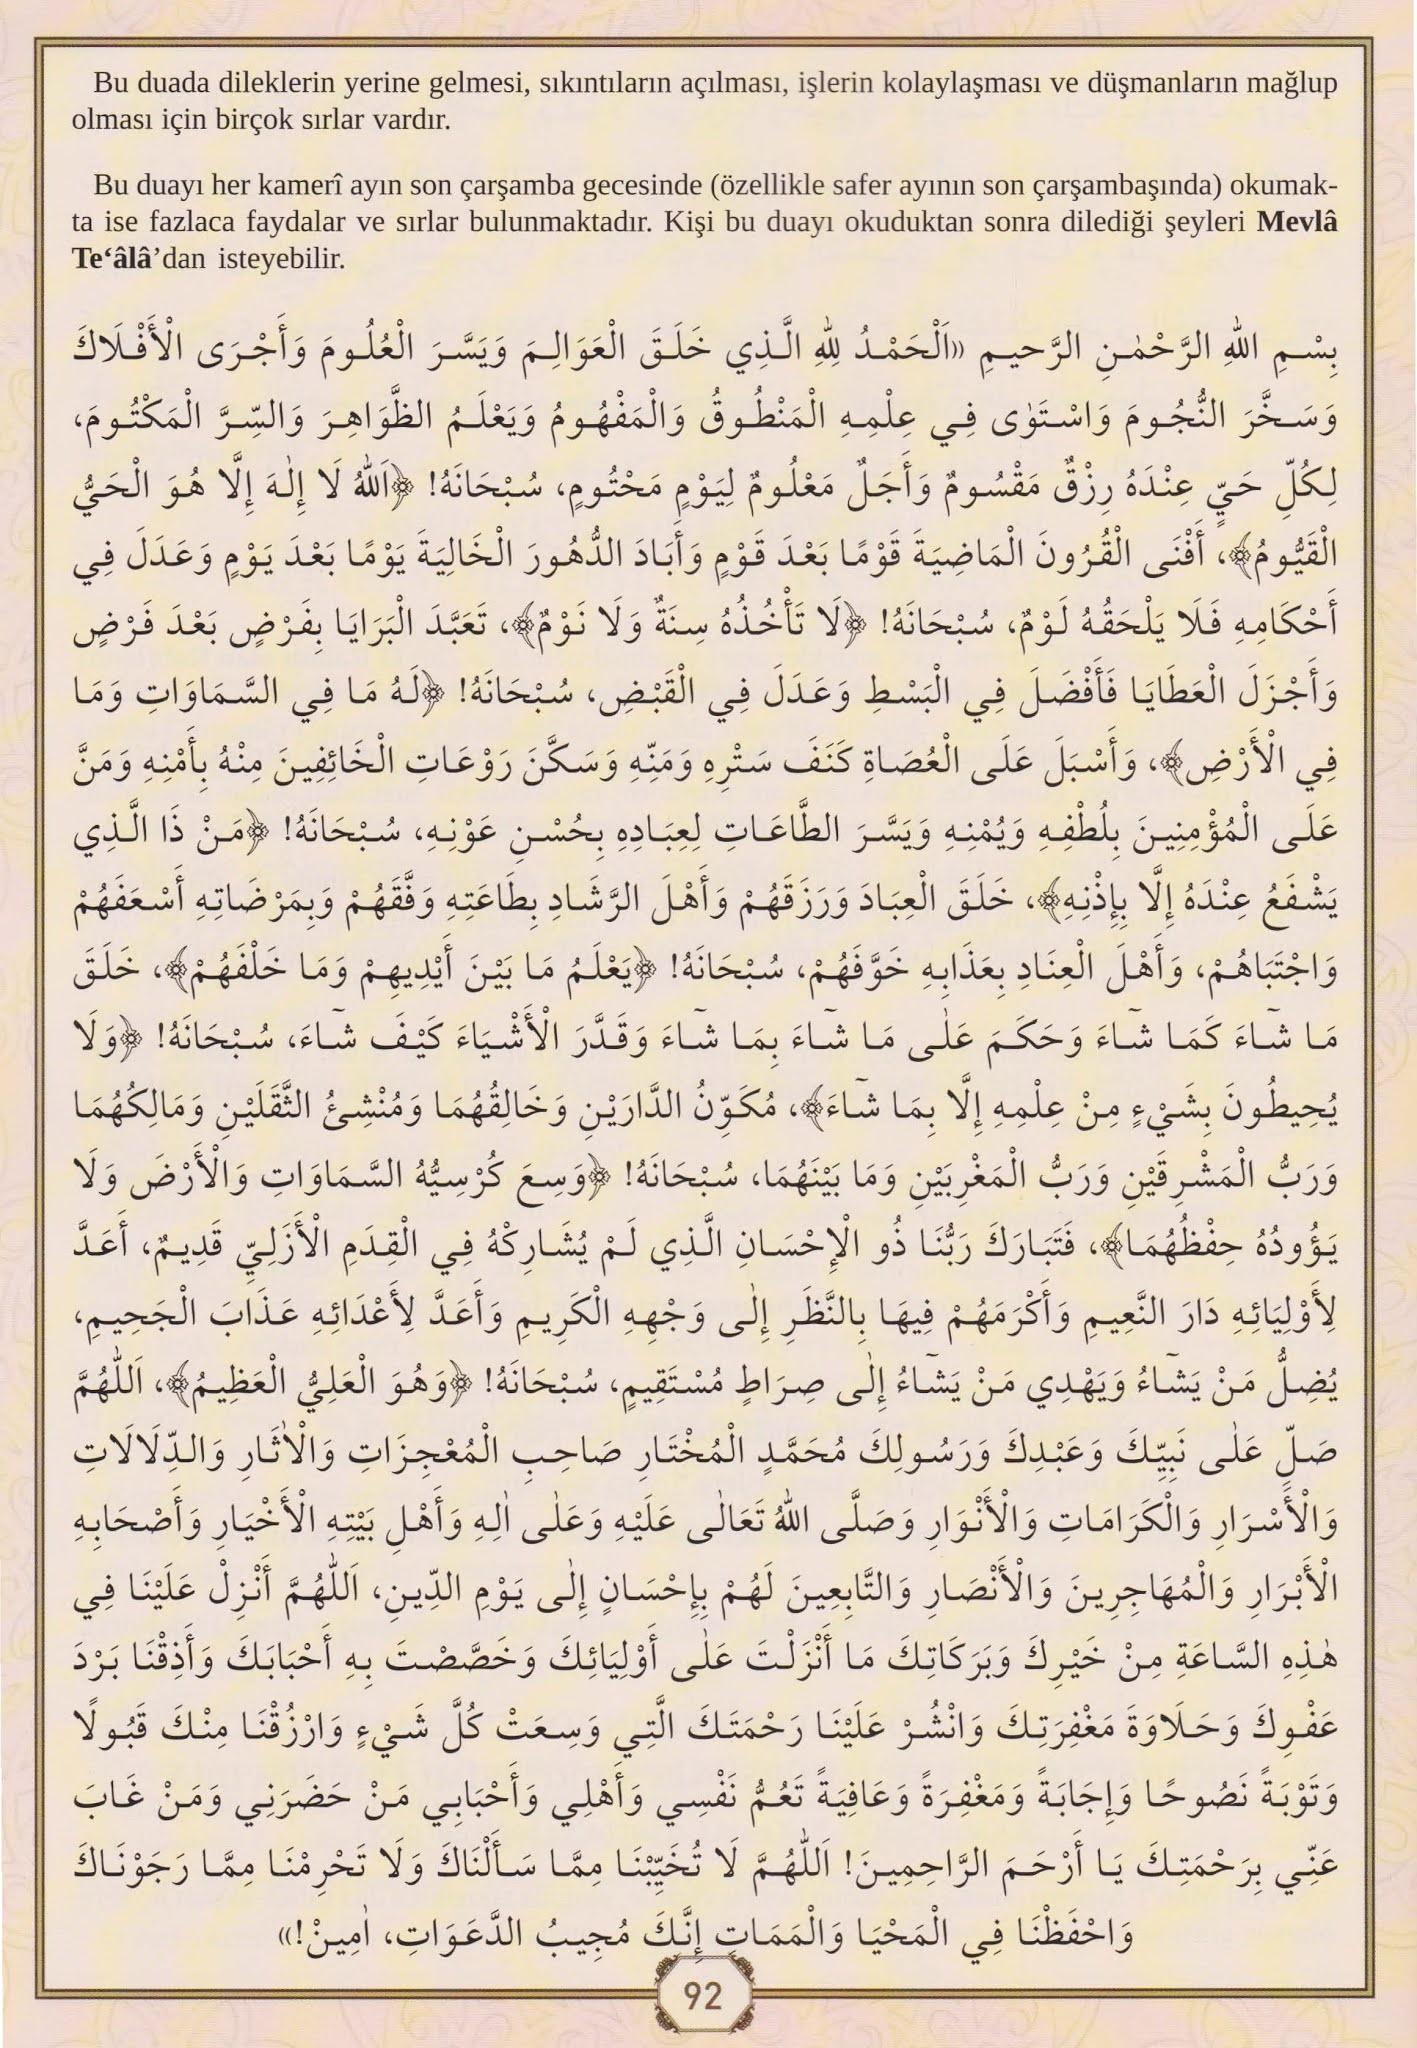 Bu duada dileklerin yerine gelmesi, sıkıntıların açılması, işlerin kolaylaşması ve düşmanların mağlup
olması için birçok sırlar vardır.
Bu duayı her kamerî ayın son çarşamba gecesinde (özellikle safer ayının son çarşambaşında) okumak-
ta ise fazlaca faydalar ve sırlar bulunmaktadır. Kişi bu duayı okuduktan sonra dilediği şeyleri Mevlâ
Te‘âlâ’dan isteyebilir.
بِسْمِ اللهِ الرَّحْمٰنِ الرَّحِيمِ «اَلْحَمْدُ لِلهِ الَّذِي خَلَقَ الْعَوَالِمَ وَيَسَّرَ الْعُلُومَ وَأَجْرَى الْأَفْلَاكَ
وَسَخَّرَ النُّجُومَ وَاسْتَوٰى فِي عِلْمِهِ الْمَنْطُوقُ وَالْمَفْهُومُ وَيَعْلَمُ الظَّوَاهِرَ وَالسِّرَّ الْمَكْتُومَ،
لِكُلِّ حَيٍّ عِنْدَهُ رِزْقٌ مَقْسُومٌ وَأَجَلٌ مَعْلُومٌ لِيَوْمٍ مَحْتُومٍ، سُبْحَانَهُ! ﴿اَللهُ لَا إِلٰهَ إِلَّا هُوَ الْحَيُّ
الْقَيُّومُ﴾، أَفْنَى الْقُرُونَ الْمَاضِيَةَ قَوْمًا بَعْدَ قَوْمٍ وَأَبَادَ الدُّهُورَ الْخَالِيَةَ يَوْمًا بَعْدَ يَوْمٍ وَعَدَلَ فِي
أَحْكَامِهِ فَلَا يَلْحَقُهُ لَوْمٌ، سُبْحَانَهُ! ﴿لَا تَأْخُذُهُ سِنَةٌ وَلَا نَوْمٌ﴾، تَعَبَّدَ الْبَرَايَا بِفَرْضٍ بَعْدَ فَرْضٍ
وَأَجْزَلَ الْعَطَايَا فَأَفْضَلَ فِي الْبَسْطِ وَعَدَلَ فِي الْقَبْضِ، سُبْحَانَهُ! ﴿لَهُ مَا فِي السَّمَاوَاتِ وَمَا
فِي الْأَرْضِ﴾، وَأَسْبَلَ عَلَى الْعُصَاةِ كَنَفَ سَتْرِهِ وَمَنِّهِ وَسَكَّنَ رَوْعَاتِ الْخَائِفِينَ مِنْهُ بِأَمْنِهِ وَمَنَّ
عَلَى الْمُؤْمِنِينَ بِلُطْفِهِ وَيُمْنِهِ وَيَسَّرَ الطَّاعَاتِ لِعِبَادِهِ بِحُسْنِ عَوْنِهِ، سُبْحَانَهُ! ﴿مَنْ ذَا الَّذِي
يَشْفَعُ عِنْدَهُ إِلَّا بِإِذْنِهِ﴾، خَلَقَ الْعِبَادَ وَرَزَقَهُمْ وَأَهْلَ الرَّشَادِ بِطَاعَتِهِ وَفَّقَهُمْ وَبِمَرْضَاتِهِ أَسْعَفَهُمْ
وَاجْتَبَاهُمْ، وَأَهْلَ الْعِنَادِ بِعَذَابِهِ خَوَّفَهُمْ، سُبْحَانَهُ! ﴿يَعْلَمُ مَا بَيْنَ أَيْدِيهِمْ وَمَا خَلْفَهُمْ﴾، خَلَقَ
مَا شَٓاءَ كَمَا شَٓاءَ وَحَكَمَ عَلٰى مَا شَٓاءَ بِمَا شَٓاءَ وَقَدَّرَ الْأَشْيَاءَ كَيْفَ شَٓاءَ، سُبْحَانَهُ! ﴿وَلَا
يُحِيطُونَ بِشَيْءٍ مِنْ عِلْمِهِ إِلَّا بِمَا شَٓاءَ﴾، مُكَوِّنُ الدَّارَيْنِ وَخَالِقُهُمَا وَمُنْشِئُ الثَّقَلَيْنِ وَمَالِكُهُمَا
وَرَبُّ الْمَشْرِقَيْنِ وَرَبُّ الْمَغْرِبَيْنِ وَمَا بَيْنَهُمَا، سُبْحَانَهُ! ﴿وَسِعَ كُرْسِيُّهُ السَّمَاوَاتِ وَالْأَرْضَ وَلَا
يَؤُودُهُ حِفْظُهُمَا﴾، فَتَبَارَكَ رَبُّنَا ذُو الْإِحْسَانِ الَّذِي لَمْ يُشَارِكْهُ فِي الْقِدَمِ الْأَزَلِيِّ قَدِيمٌ، أَعَدَّ
لِأَوْلِيَائِهِ دَارَ النَّعِيمِ وَأَكْرَمَهُمْ فِيهَا بِالنَّظَرِ إِلٰى وَجْهِهِ الْكَرِيمِ وَأَعَدَّ لِأَعْدَائِهِ عَذَابَ الْجَحِيمِ،
يُضِلُّ مَنْ يَشَٓاءُ وَيَهْدِي مَنْ يَشَٓاءُ إِلٰى صِرَاطٍ مُسْتَقِيمٍ، سُبْحَانَهُ! ﴿وَهُوَ الْعَلِيُّ الْعَظِيمُ﴾، اَللّٰهُمَّ
صَلِّ عَلٰى نَبِيِّكَ وَعَبْدِكَ وَرَسُولِكَ مُحَمَّدٍ الْمُخْتَارِ صَاحِبِ الْمُعْجِزَاتِ وَالْاٰثَارِ وَالدِّلَالَاتِ
وَالْأَسْرَارِ وَالْكَرَامَاتِ وَالْأَنْوَارِ وَصَلَّى اللهُ تَعَالٰى عَلَيْهِ وَعَلٰى اٰلِهِ وَأَهْلِ بَيْتِهِ الْأَخْيَارِ وَأَصْحَابِهِ
الْأَبْرَارِ وَالْمُهَاجِرِينَ وَالْأَنْصَارِ وَالتَّابِعِينَ لَهُمْ بِإِحْسَانٍ إِلٰى يَوْمِ الدِّينِ، اَللّٰهُمَّ أَنْزِلْ عَلَيْنَا فِي
هٰذِهِ السَّاعَةِ مِنْ خَيْرِكَ وَبَرَكَاتِكَ مَا أَنْزَلْتَ عَلٰى أَوْلِيَائِكَ وَخَصَّصْتَ بِهِ أَحْبَابَكَ وَأَذِقْنَا بَرْدَ
عَفْوِكَ وَحَلَاوَةَ مَغْفِرَتِكَ وَانْشُرْ عَلَيْنَا رَحْمَتَكَ الَّتِي وَسِعَتْ كُلَّ شَيْءٍ وَارْزُقْنَا مِنْكَ قَبُولًا
وَتَوْبَةً نَصُوحًا وَإِجَابَةً وَمَغْفِرَةً وَعَافِيَةً تَعُمُّ نَفْسِي وَأَهْلِي وَأَحْبَابِي مَنْ حَضَرَنِي وَمَنْ غَابَ
عَنِّي بِرَحْمَتِكَ يَا أَرْحَمَ الرَّاحِمِينَ! اَللّٰهُمَّ لَا تُخَيِّبْنَا مِمَّا سَأَلْنَاكَ وَلَا تَحْرِمْنَا مِمَّا رَجَوْنَاكَ
وَاحْفَظْنَا فِي الْمَحْيَا وَالْمَمَاتِ إِنَّكَ مُجِيبُ الدَّعَوَاتِ، اٰمِينْ!»
92